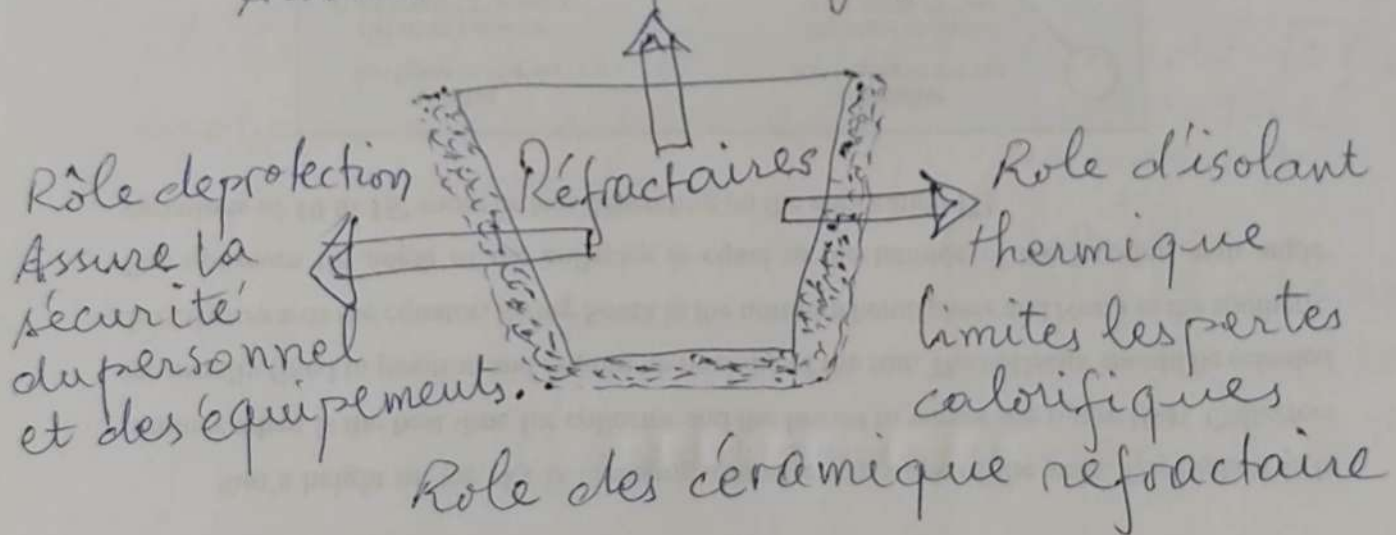 Réfractaires
Rôle de protection
Assure la
sécurité
du personnel
et des équipements.
Role d'isolant
thermique
limites les pertes
calorifiques
Role des céramique réfractaire